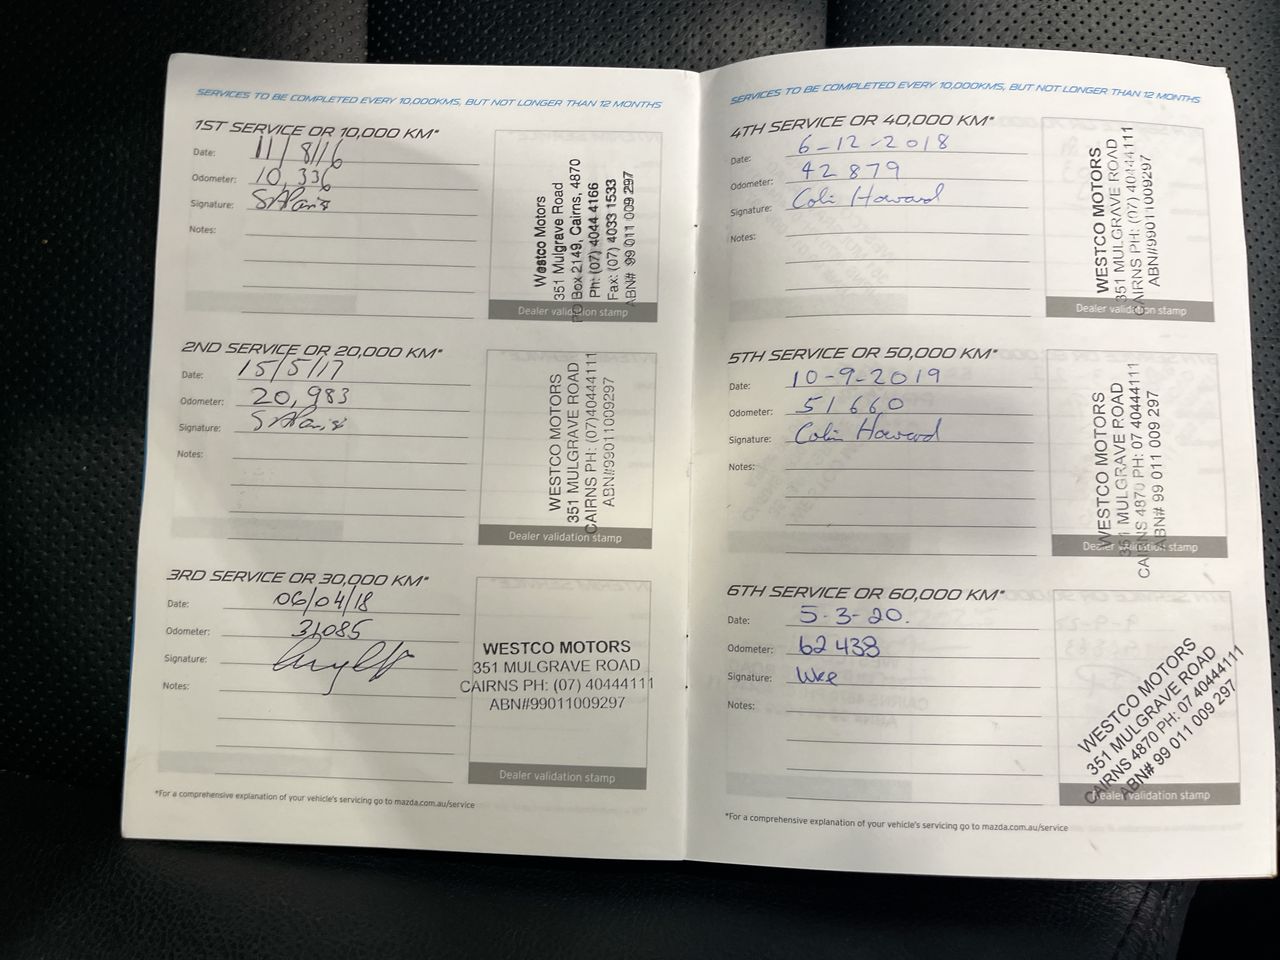 SERVICES TO BE COMPLETED EVERY 10,000KMS, BUT NOT LONGER THAN 12 MONTHS
1ST SERVICE OR 10,000 KM*
Date: 11/8/16
Odometer: 10,336
Signature:
Notes:
Westco Motors
351 Mulgrave Road
PO Box 2149, Cairns, 4870
Ph: (07) 4044 4166
Fax: (07) 4033 1533
ABN# 99 011 009 297
Dealer validation stamp
2ND SERVICE OR 20,000 KM*
Date: 15/5/17
Odometer: 20,983
Signature:
Notes:
WESTCO MOTORS
351 MULGRAVE ROAD
CAIRNS PH: (07)40444111
ABN#99011009297
Dealer validation stamp
3RD SERVICE OR 30,000 KM*
Date: 06/04/18
Odometer: 31085
Signature:
Notes:
WESTCO MOTORS
351 MULGRAVE ROAD
CAIRNS PH: (07) 40444111
ABN#99011009297
Dealer validation stamp
*For a comprehensive explanation of your vehicle's servicing go to mazda.com.au/service
SERVICES TO BE COMPLETED EVERY 10,000KMS, BUT NOT LONGER THAN 12 MONTHS
4TH SERVICE OR 40,000 KM*
Date: 6-12-2018
Odometer: 42879
Signature: Colin Howard
Notes:
WESTCO MOTORS
351 MULGRAVE ROAD
CAIRNS PH: (07) 40444111
ABN#99011009297
Dealer validation stamp
5TH SERVICE OR 50,000 KM*
Date: 10-9-2019
Odometer: 51660
Signature: Colin Howard
Notes:
WESTCO MOTORS
351 MULGRAVE ROAD
CAIRNS 4870 PH: 07 40444111
ABN# 99 011 009 297
Dealer validation stamp
6TH SERVICE OR 60,000 KM*
Date: 5-3-20.
Odometer: 62438
Signature:
Notes:
WESTCO MOTORS
351 MULGRAVE ROAD
CAIRNS 4870 PH: 07 40444111
ABN# 99 011 009 297
Dealer validation stamp
*For a comprehensive explanation of your vehicle's servicing go to mazda.com.au/service